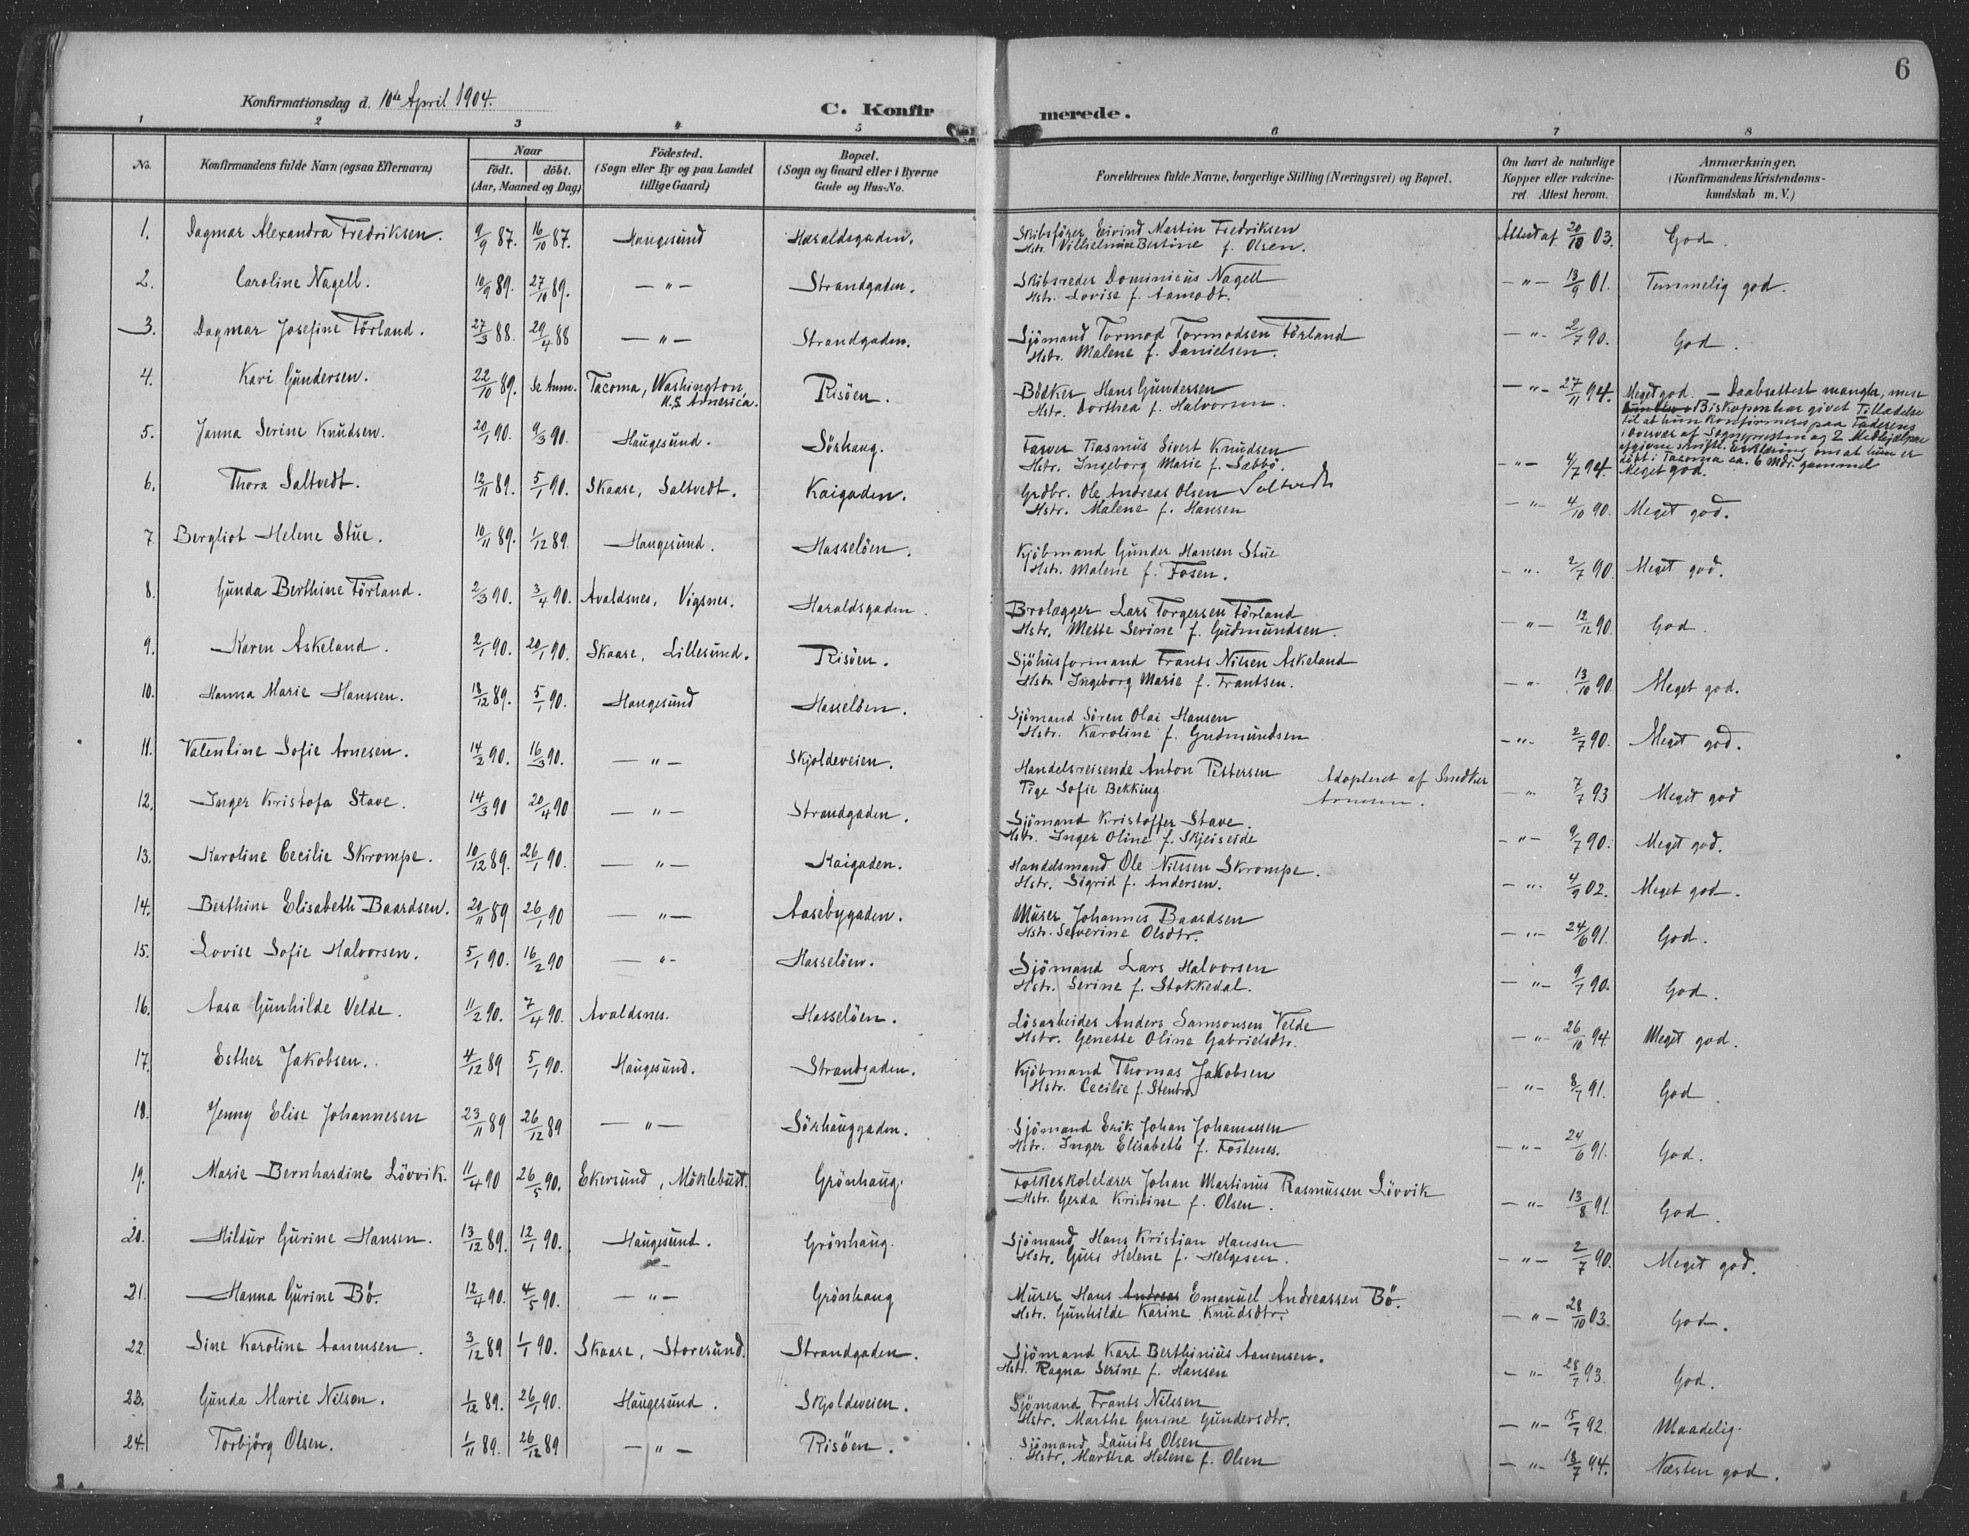 6
Konfirmationsdag d. 10de April 1904.
C. Konfir merede.
1 2 3 4 5 6 7 8
No. | Konfirmandens fulde Navn (ogsaa Efternavn) | Naar födt. döbt. (Aar, Maaned og Dag) | Födested. (Sogn eller By og paa Landet tillige Gaard) | Bopæl. (Sogn og Gaard eller i Byerne Gade og Hus-No. | Forældrenes fulde Navne, borgerlige Stilling (Næringsvei) og Bopæl. | Om havt de naturlige Kopper eller vakcineret. Attest herom. | Anmærkninger. (Konfirmandens Kristendomskundskab m. V.)
1. Dagmar Alexandra Fredriksen. 9/9 87. 16/10 87. Haugesund Haraldsgaden. Skibsfører Eivind Martin Fredriksen Attest af 20/10 03. God.
Hstr. Vilhelmine Bertine f. Olsen.
2. Caroline Nagell. 10/9 89. 27/10 89. — " — Strandgaden. Skibsreder Dominicus Nagell — " — 13/9 01. Temmelig god.
Hstr. Lovise f. Aamodt.
3. Dagmar Josefine Førland. 27/3 88. 29/4 88 — " — Strandgaden. Sjömand Tormod Tormodsen Førland — " — 2/7 90. God.
Hstr. Malene f. Danielsen.
4. Kari Gundersen. 22/10 89. Se Anm. Tacoma, Washington, U.S. America. Risöen. Bødker Hans Gundersen — " — 27/11 94. Meget god. — Daabsattest mangler, men
Hstr. Dorthea f. Halvorsen. Biskopen har givet Tilladelse
til at hun konfirmeres paa Faderens
i Overvær af Sognepresten og 2 Medhjælpere
afgivne skriftl. Erklæring om at hun er
døbt i Tacoma ca. 6 Mdr. gammel
5. Janna Serine Knudsen. 20/1 90. 9/3 90. Haugesund. Sörhaug. Farver Rasmus Sivert Knudsen — " — 4/7 94. Meget god.
Hstr. Ingeborg Marie f. Sæbbø.
6. Thora Saltvedt. 12/11 89. 5/1 90. Skaare, Saltvedt. Kaigaden. Grdbr. Ole Andreas Olsen Saltvedt — " — 4/10 90. Meget god.
Hstr. Malene f. Hansen
7. Bergliot Helene Stue. 10/11 89. 1/12 89. Haugesund. Hasselöen. Kjöbmand Gunder Hansen Stue — " — 2/7 90. Meget god.
Hstr. Malene f. Fosen.
8. Gunda Berthine Førland. 2/3 90. 3/4 90. Avaldsnes, Vigsnes. Haraldsgaden. Brolægger Lars Torgersen Førland — " — 12/12 90. God.
Hstr. Mette Serine f. Gudmundsen.
9. Karen Askeland. 2/1 90. 20/1 90. Skaare, Lillesund. Risöen. Sjöhusformand Frants Nilsen Askeland — " — 13/10 90. Meget god.
Hstr. Ingeborg Marie f. Frantsen.
10. Hanna Marie Hanssen. 18/12 89. 5/1 90. Haugesund Hasselöen. Sjömand Søren Olai Hansen — " — 2/7 90. Meget god.
Hstr. Karoline f. Gudmundsen
11. Valentine Sofie Arnesen. 14/2 90. 16/3 90. — " — Skjoldeveien. Handelsreisende Anton Pettersen Adopteret af Snedker — " — 7/7 93 Meget god
Pige Sofie Bekking Arnesen.
12. Inger Kristofa Stave. 14/3 90 20/4 90 — " — Strandgaden. Sjömand Kristoffer Stave. — " — 9/7 90. Meget god.
Hstr. Inger Oline f. Skjeiseide
13. Karoline Cecilie Skrompe. 10/12 89. 26/1 90. — " — Kaigaden. Handelsmand Ole Nilssen Skrompe. — " — 4/9 02. Meget god.
Hstr. Sigrid f. Andersen.
14. Berthine Elisabeth Baardsen. 20/11 89 26/1 90 — " — Aasebygaden. Murer Johannes Baardsen — " — 24/6 91. God.
Hstr. Severine Olsdtr.
15. Lovise Sofie Halvorsen. 5/1 90. 16/2 90 — " — Hasselöen. Sjömand Lars Halvorsen — " — 9/7 90. God.
Hstr. Serine f. Stokkedal.
16. Aasa Gunhilde Velde. 11/2 90. 7/4 90. Avaldsnes. Hasselöen. Løsarbeider Anders Samsonsen Velde — " — 26/10 94. Meget god.
Hstr. Genette Oline Gabrielsdtr.
17. Esther Jakobsen. 4/12 89 5/1 90. Haugesund. Strandgaden. Kjöbmand Thomas Jakobsen — " — 8/7 91. God.
Hstr. Cecilie f. Stenbrø
18. Jenny Elise Johannesen 23/11 89 26/12 89 — " — Sörhauggaden. Sjömand Erik Johan Johannesen — " — 24/6 91. God.
Hstr. Inger Elisabeth f. Fostenes.
19. Marie Bernhardine Lövvik. 11/4 90 26/5 90. Ekersund, Möklebust. Grönhaug. Folkeskolelærer Johan Martinus Rasmussen Lövvik — " — 13/8 91. God.
Hstr. Gerda Kristine f. Olsen.
20. Hildur Gurine Hansen. 13/12 89. 12/1 90. Haugesund. Grönhaug. Sjömand Hans Kristian Hansen — " — 2/7 90. Meget god.
Hstr. Guri Helene f. Helgesen.
21. Hanna Gurine Bö. 12/4 90. 4/5 90. — " — Grönhaug Murer Hans Andreas Emanuel Andreassen Bö. — " — 28/10 03. God.
Hstr. Gunhilde Karine Knudsdtr.
22. Sine Karoline Aanensen. 3/12 89 1/1 90. Skaare, Storesund. Strandgaden. Sjömand Karl Berthinius Aanensen. — " — 28/7 93. God.
Hstr. Ragna Serine f. Hansen
23. Gunda Marie Nilsen. 1/12 89. 26/1 90. Haugesund. Skjoldeveien. Sjömand Frants Nilssen — " — 15/7 92. Maadelig.
Hstr. Marthe Gurine Gundersdtr.
24. Torbjörg Olsen. 1/11 89. 26/12 89 — " — Risöen. Sjömand Laurits Olsen — " — 18/7 94. Næsten god.
Hstr. Martha Helene f. Olsen